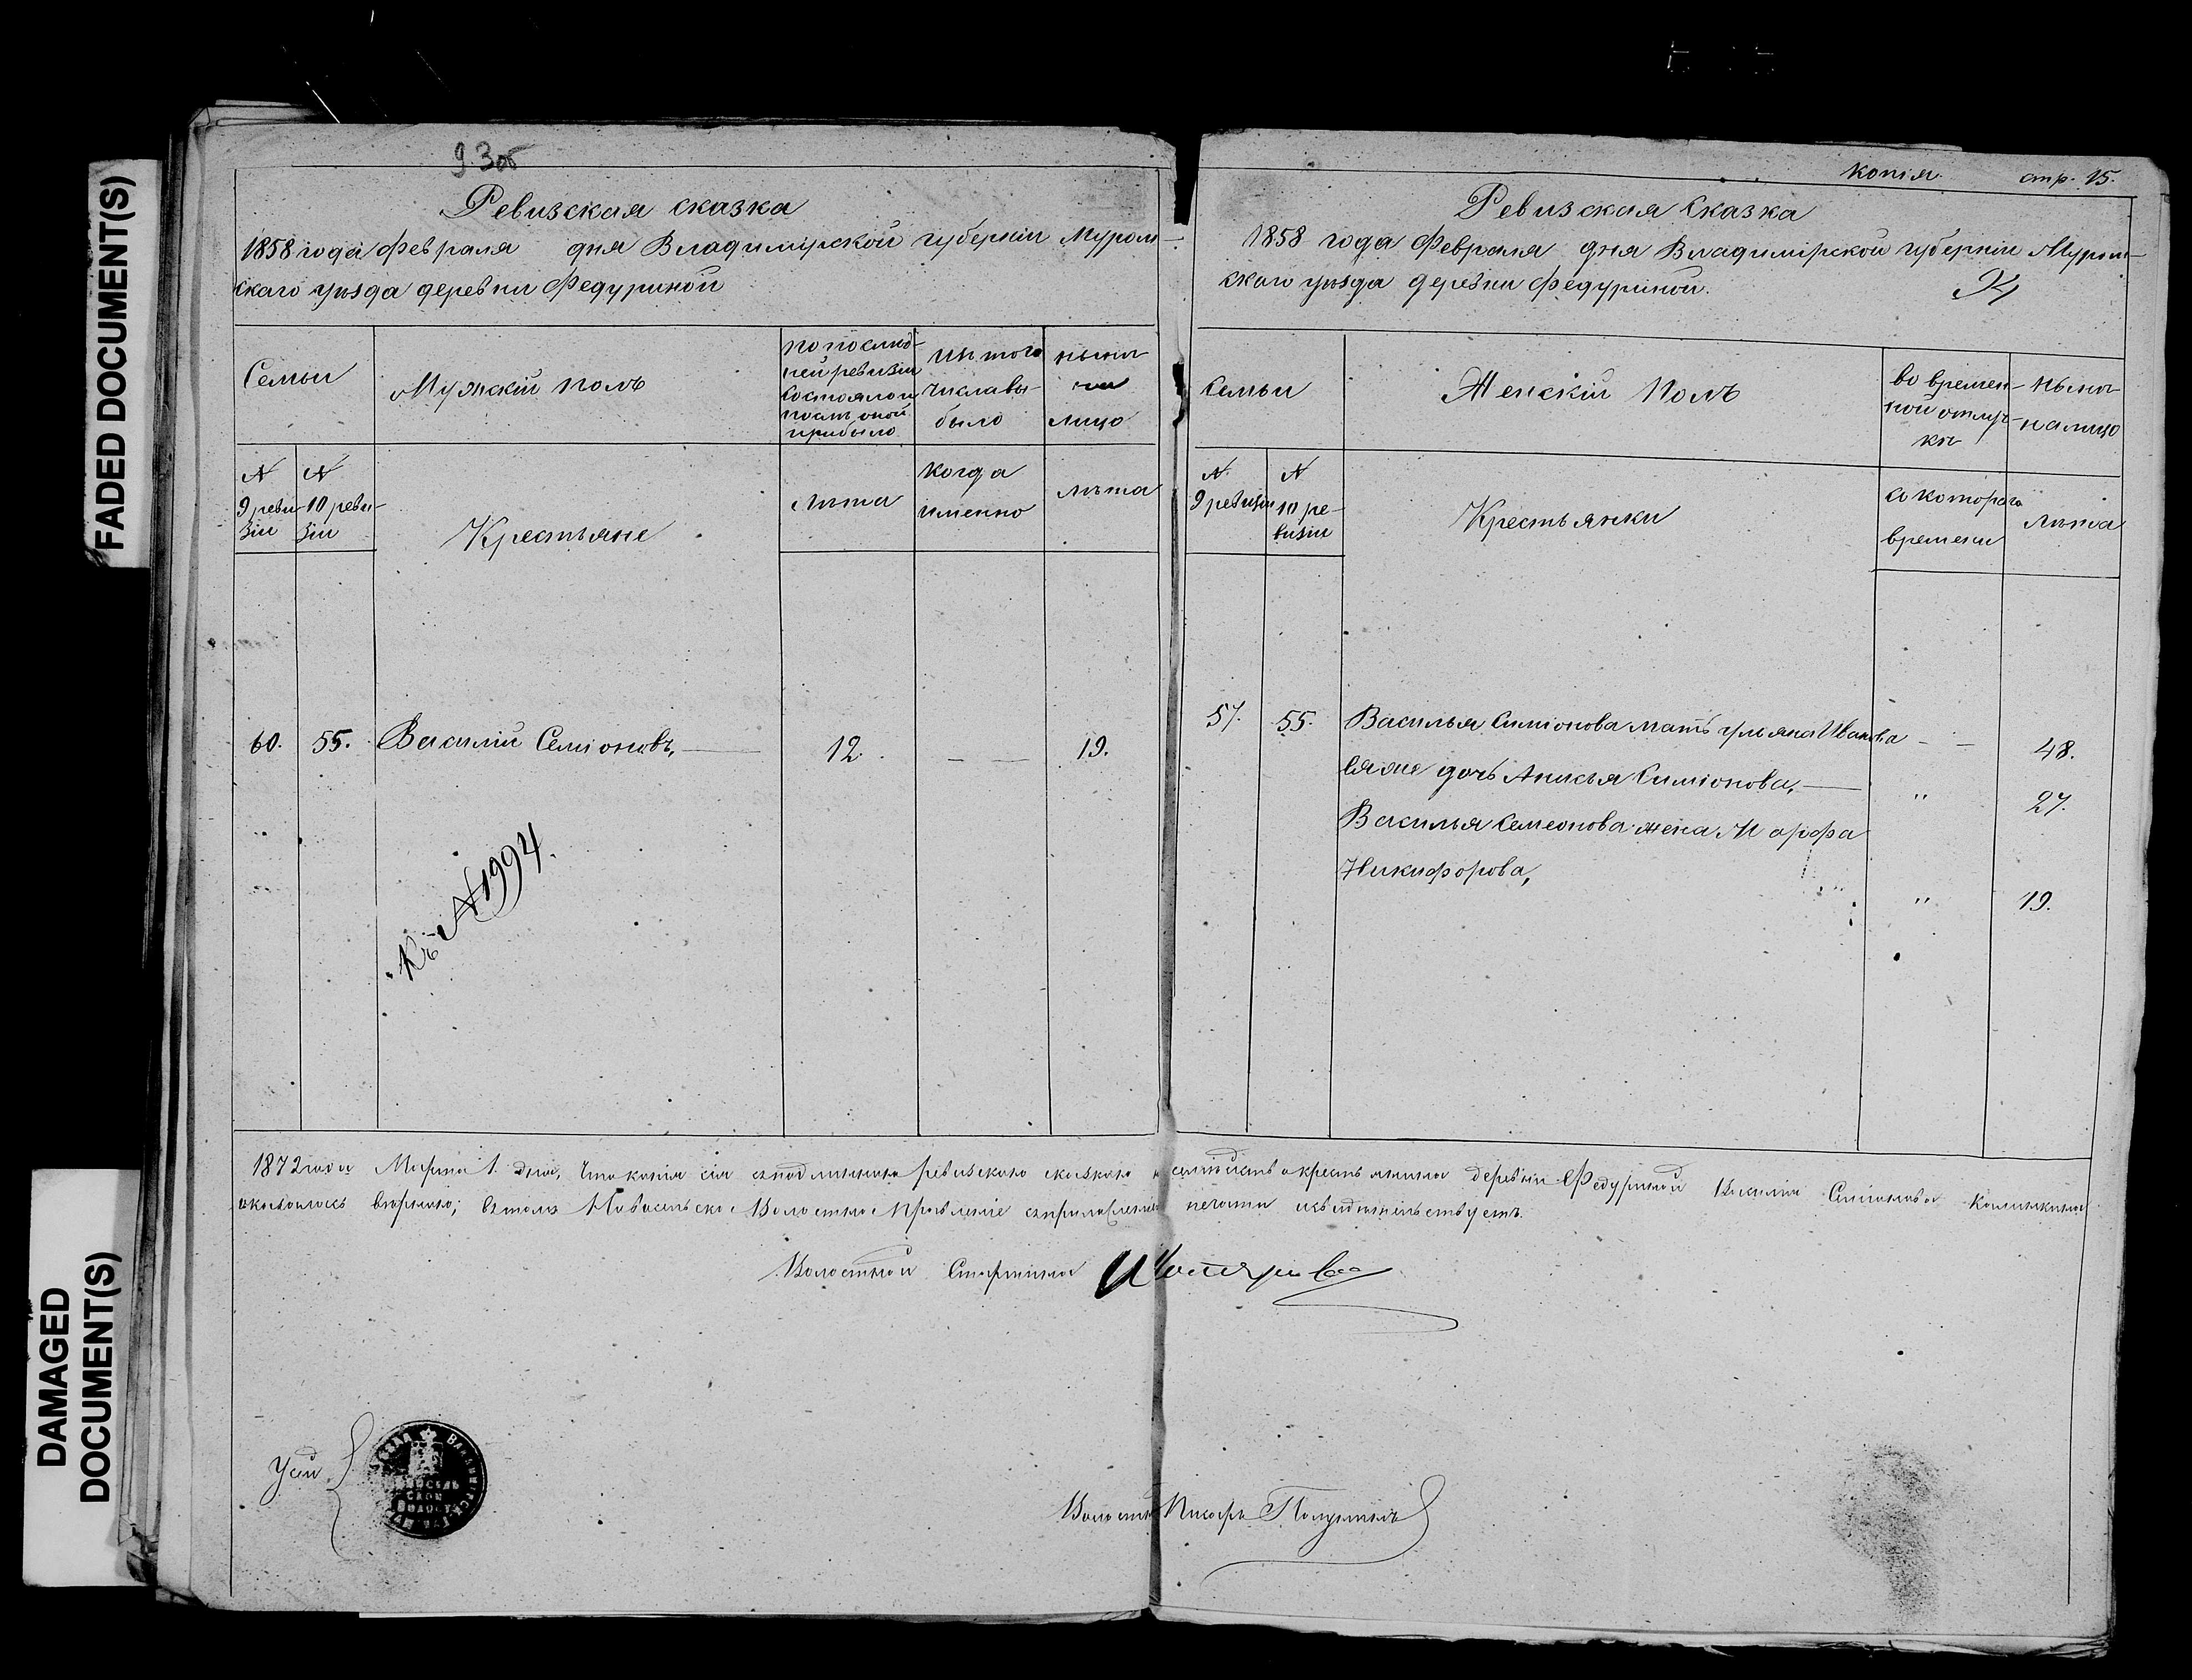 FADED DOCUMENT(S)
DAMAGED
DOCUMENT(S)
93об
Ревизская сказка
1858 года февраля дня Владимірской губерніи Муром-
скаго уѣзда деревни Федуриной
Семьи
Мужскій полъ
по послѣд-
ней ревизіи
состояло и
послѣ оной
прибыло
изъ того
числа вы-
было
нынѣ
на
лицо
N
9 реви-
зіи
N
10 реви-
зіи
Крестьяне
лѣта
когда
именно
лѣта
60.
55.
Василій Семіоновъ,
12.
19.
Къ N1994.
копія.
стр. 15.
Ревизская Сказка
1858 года Февраля дня Владимірской губерніи Муром-
скаго уѣзда деревни Федуриной.
Семьи
Женскій Полъ
во времен-
ной отлуч-
кѣ
нынѣ
на лицо
N
9 ревизіи
N
10 ре-
визіи
Крестьянки
съ котораго
времени
лѣта
57.
55.
Василья Симіонова мать Ульяна Иванова
48.
ея же дочь Анисья Симіонова,
"
27.
Василья Семеонова жена Марфа
Никифорова,
"
19.
1872 года Марта 1 дня, Что копія сія съ подлинною ревизскою сказкою о семействѣ крестьянина деревни Федуриной Василія Семіонова
оказалась вѣрною; въ томъ Новосельское Волостное Правленіе съ приложеніемъ печати свидѣтельствуетъ.
Волостной Старшина
Волостной Писарь